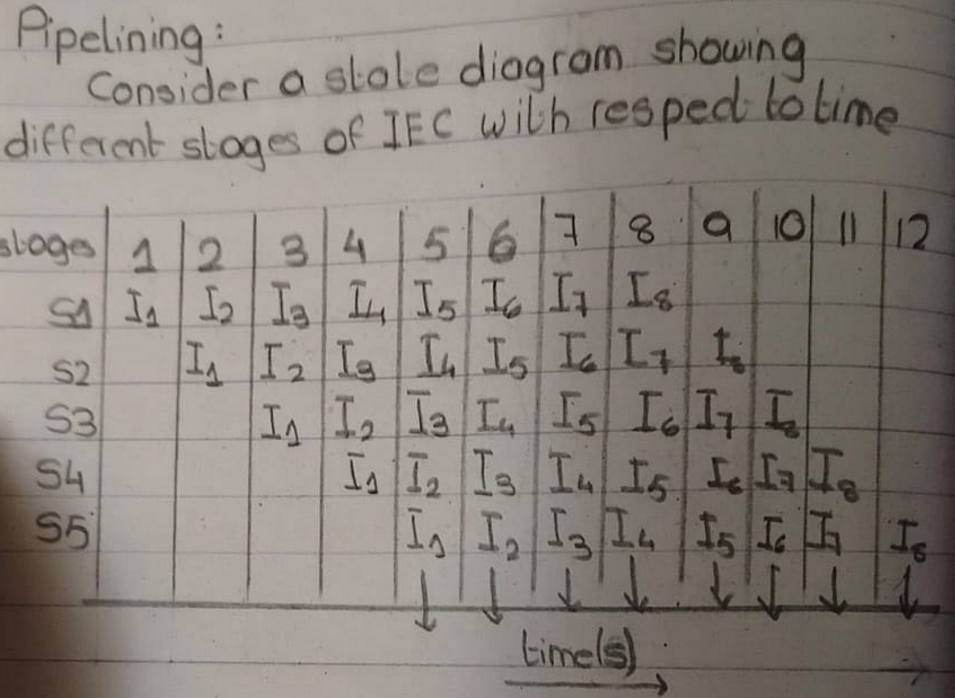 Pipelining:
Consider a state diagram showing
different stages of IEC with respect to time
stages 1 2 3 4 5 6 7 8 9 10 11 12
S1 I1 I2 I3 I4 I5 I6 I7 I8
S2 I1 I2 I3 I4 I5 I6 I7 I8
S3 I1 I2 I3 I4 I5 I6 I7 I8
S4 I1 I2 I3 I4 I5 I6 I7 I8
S5 I1 I2 I3 I4 I5 I6 I7 I8
time(s)